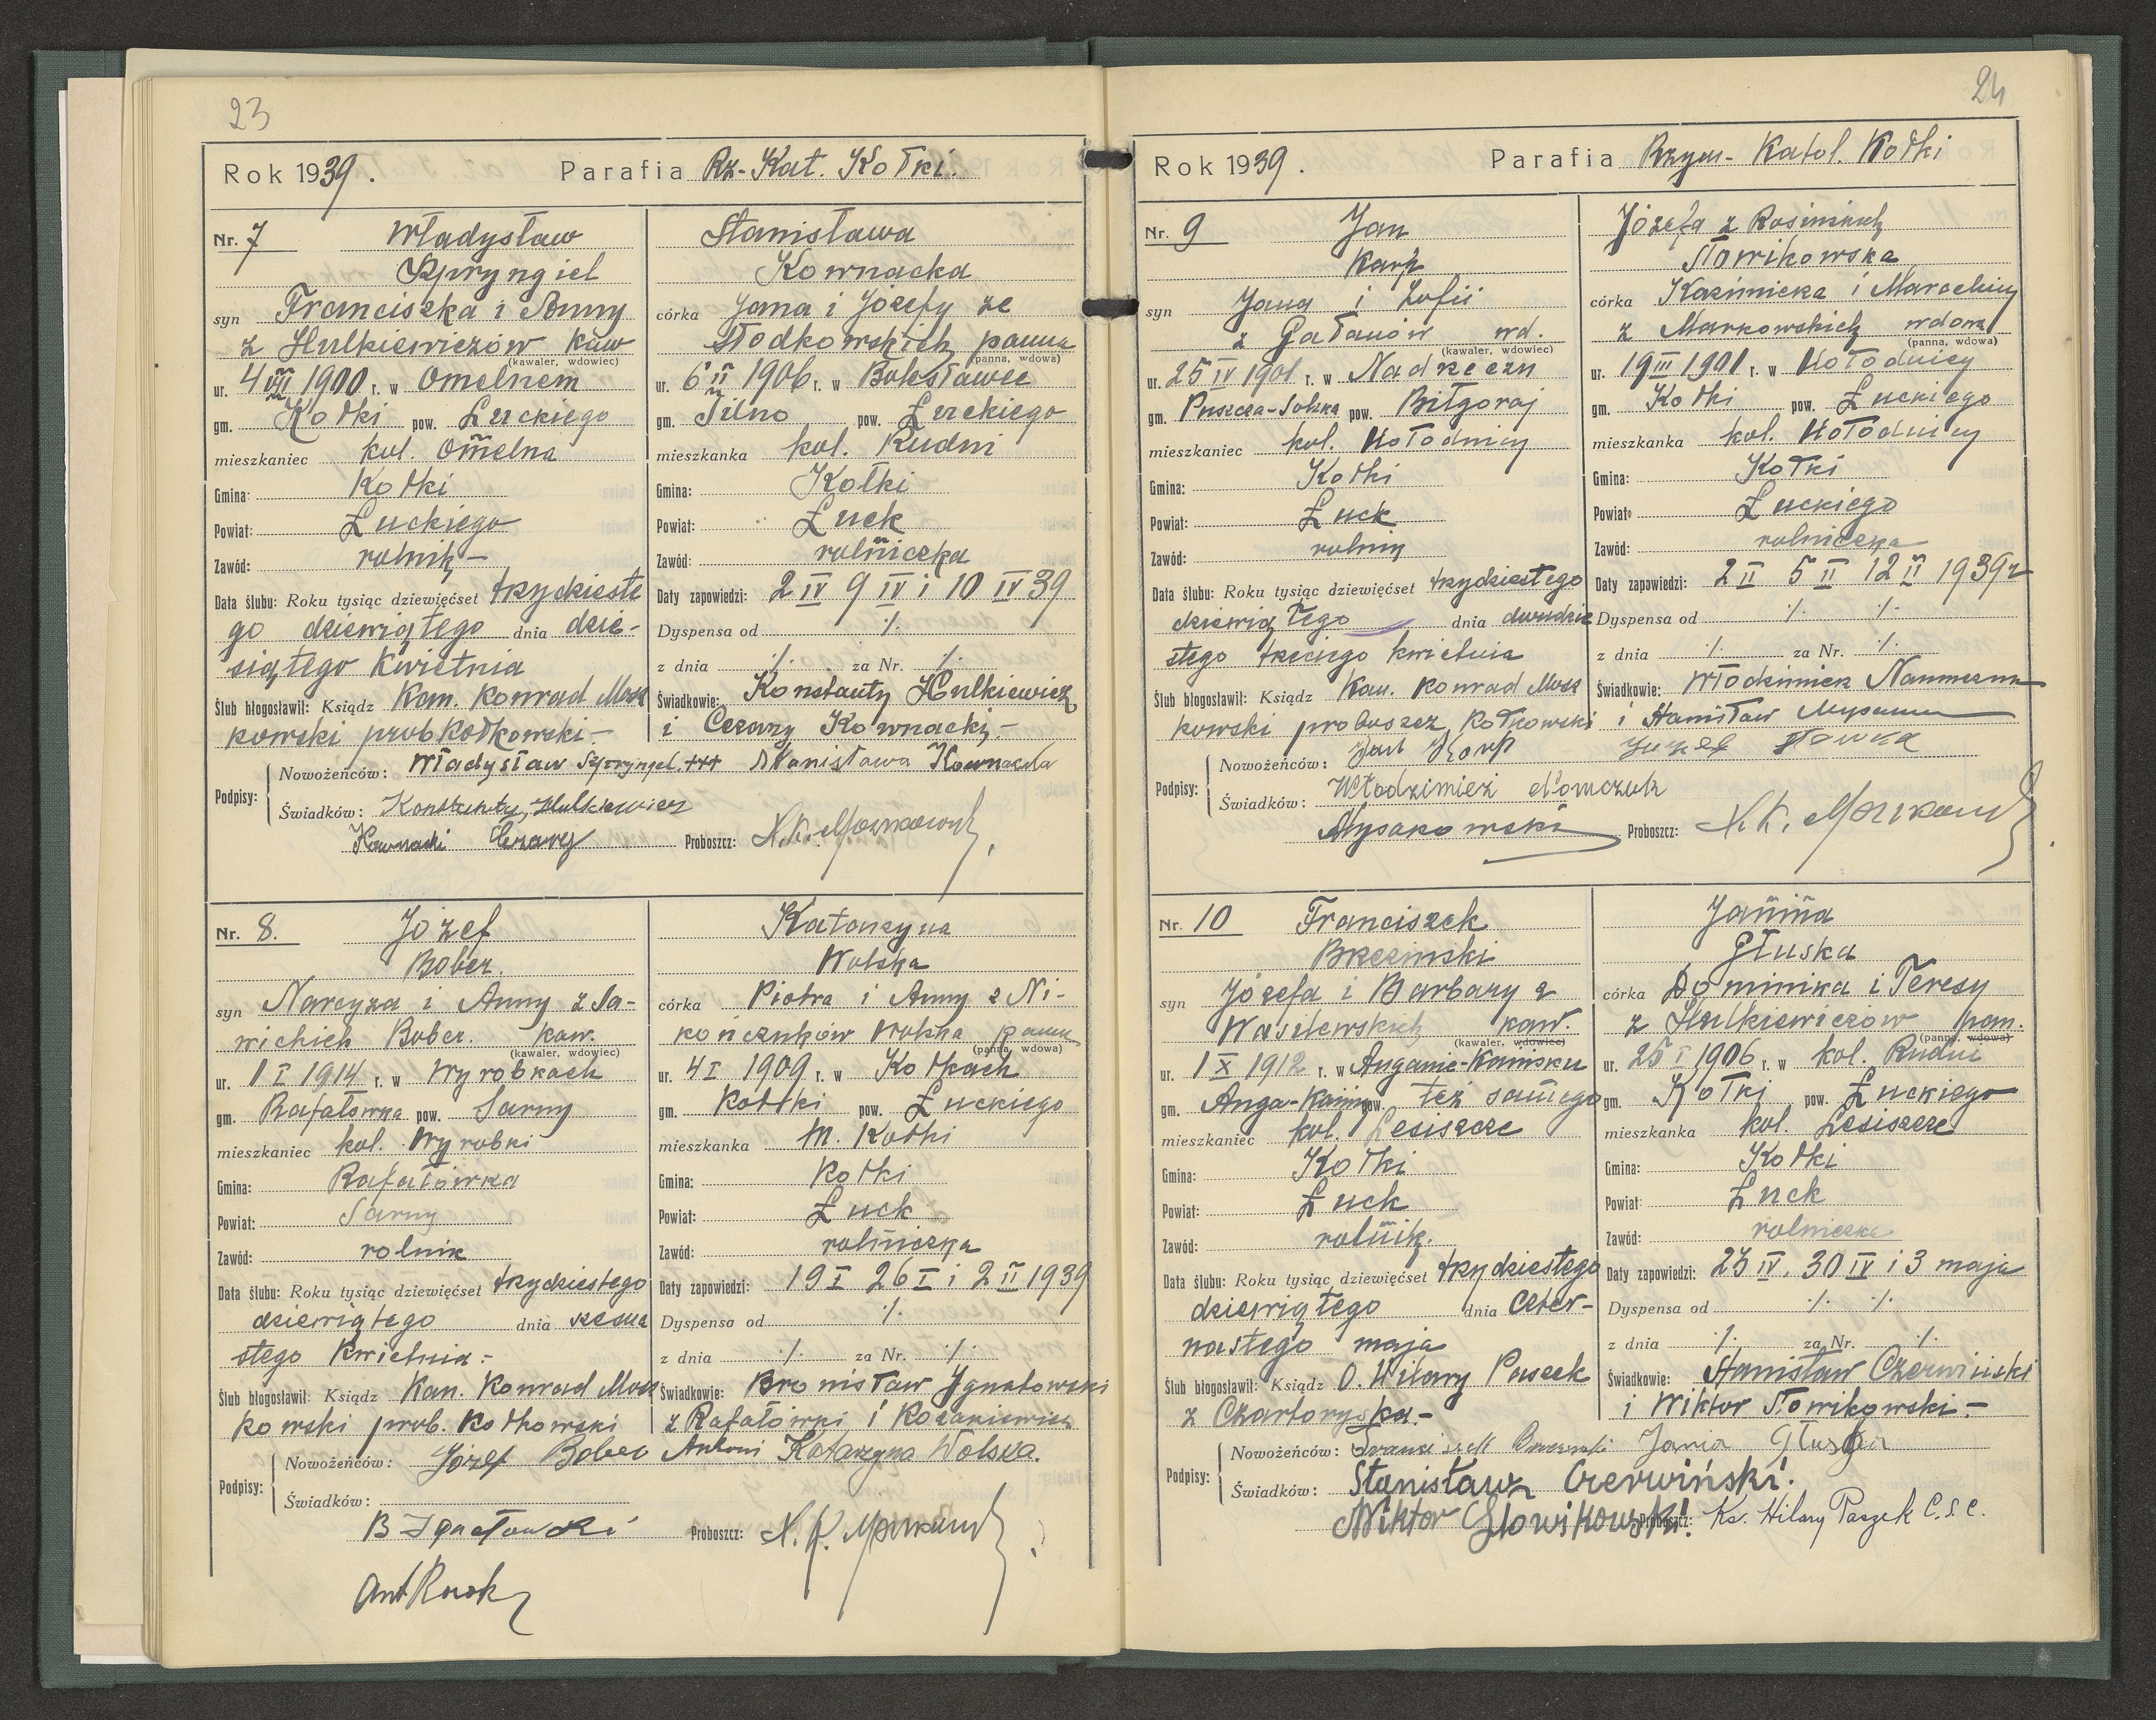 23
Rok 1939. Parafia Rz-Kat. Kołki.
Nr. 7 Władysław
Szpryngiel
syn Franciszka i Anny
z Hulkiewiczów kaw
(kawaler, wdowiec)
ur. 4 VII 1900 r. w Omelnem
gm. Kołki pow. Łuckiego
mieszkaniec kol. Omelna
Gmina: Kołki
Powiat: Łuckiego
Zawód: rolnik –
Data ślubu: Roku tysiąc dziewięćset trzydzieste
go dziewiątego dnia dzie-
siątego kwietnia
Ślub błogosławił: Ksiądz Kan. Konrad Mosz
kowski prob Kołkowski –
Stanisława
Kownacka
córka Jana i Józefy ze
Słodkowskich panna
(panna, wdowa)
ur. 6 II 1906 r. w Bolesławce
gm. Silno pow. Łuckiego
mieszkanka kol. Rudni
Gmina: Kołki
Powiat: Łuck
Zawód: rolniczka
Daty zapowiedzi: 2 IV 9 IV i 10 IV 39
Dyspensa od ·/·
z dnia ·/· za Nr. ·/·
Świadkowie: Konstanty Hulkiewicz
i Cezary Kownacki, –
Podpisy:
Nowożeńców: Władysław Szpryngel. +++ Stanisława Kownacka
Świadków: Konstanty Hulkiewicz
Kownacki Cezary Proboszcz: X. K. Moszkowski
Nr. 8. Józef
Bober.
syn Narcyza i Anny z Sa-
wickich Bober. kaw.
(kawaler, wdowiec)
ur. 1 I 1914 r. w Wyrobkach
gm. Rafałówka pow. Sarny
mieszkaniec kol. Wyrobki
Gmina: Rafałówka
Powiat: Sarny
Zawód: rolnik
Data ślubu: Roku tysiąc dziewięćset trzydziestego
dziewiątego dnia szesna
stego kwietnia –
Ślub błogosławił: Ksiądz Kan. Konrad Mosz
kowski prob. Kołkowski
Katarzyna
Wolska
córka Piotra i Anny z Ni-
kończuków Wolska panna
(panna, wdowa)
ur. 4 I 1909 r. w Kołkach
gm. Kołki pow. Łuckiego
mieszkanka m. Kołki
Gmina: Kołki
Powiat: Łuck
Zawód: rolniczka
Daty zapowiedzi: 19 I 26 I i 2 II 1939
Dyspensa od ·/·
z dnia ·/· za Nr. ·/·
Świadkowie: Bronisław Ignatowski
z Rafałówki i Kozakiewicz
Antoni
Podpisy:
Nowożeńców: Józef Bober Katarzyna Wolska.
Świadków:
B Ignatowski Proboszcz: X. K. Moszkowski
24
Rok 1939. Parafia Rzym- Katol. Kołki
Nr. 9 Jan
Karp
syn Jana i Zofii
z Gałanów wd.
(kawaler, wdowiec)
ur. 25 IV 1901 r. w Nadrzeczu
gm. Puszcza-Solska pow. Biłgoraj
mieszkaniec kol. Hołodnicy
Gmina: Kołki
Powiat: Łuck
Zawód: rolnik
Data ślubu: Roku tysiąc dziewięćset trzydziestego
dziewiątego dnia dwudzie
stego trzeciego kwietnia
Ślub błogosławił: Ksiądz Kan. Konrad Mosz
kowski proboszcz Kołkowski
Józefa z Rosińskich
Słowikowska
córka Kazimierza i Marceliny
z Markowskich wdowa
(panna, wdowa)
ur. 19 III 1901 r. w Hołodnicy
gm. Kołki pow. Łuckiego
mieszkanka kol. Hołodnicy
Gmina: Kołki
Powiat: Łuckiego
Zawód: rolniczka
Daty zapowiedzi: 2 II 5 II 12 II 1939 r
Dyspensa od ·/· ·/·
z dnia ·/· za Nr. ·/·
Świadkowie: Włodzimierz
i Stanisław
Podpisy:
Nowożeńców: Jan Karp
Świadków: Włodzimierz
Mysakowski Proboszcz: X. K. Moszkowski
Nr. 10 Franciszek
Brzeziński
syn Józefa i Barbary z
Wasilewskich kaw.
(kawaler, wdowiec)
ur. 1 X 1912 r. w
gm. pow. też samego
mieszkaniec kol. Lesiszcze
Gmina: Kołki
Powiat: Łuck
Zawód: rolnik.
Data ślubu: Roku tysiąc dziewięćset trzydziestego
dziewiątego dnia czter-
nastego maja
Ślub błogosławił: Ksiądz O. Hilary Paszek
z Czartoryska. –
Janina
Głuska
córka Dominika i Teresy
z Hulkiewiczów pan.
(panna, wdowa)
ur. 25 I 1906 r. w kol. Rudni
gm. Kołki pow. Łuckiego
mieszkanka kol. Lesiszcze
Gmina: Kołki
Powiat: Łuck
Zawód: rolniczka
Daty zapowiedzi: 23 IV. 30 IV i 3 maja
Dyspensa od ·/· ·/·
z dnia ·/· za Nr. ·/·
Świadkowie: Stanisław Czerwiński
i Wiktor Słowikowski –
Podpisy:
Nowożeńców: Głuska
Świadków: Stanisław Czerwiński.
Wiktor Słowikowski. Proboszcz: Ks. Hilary Paszek C.S.C.